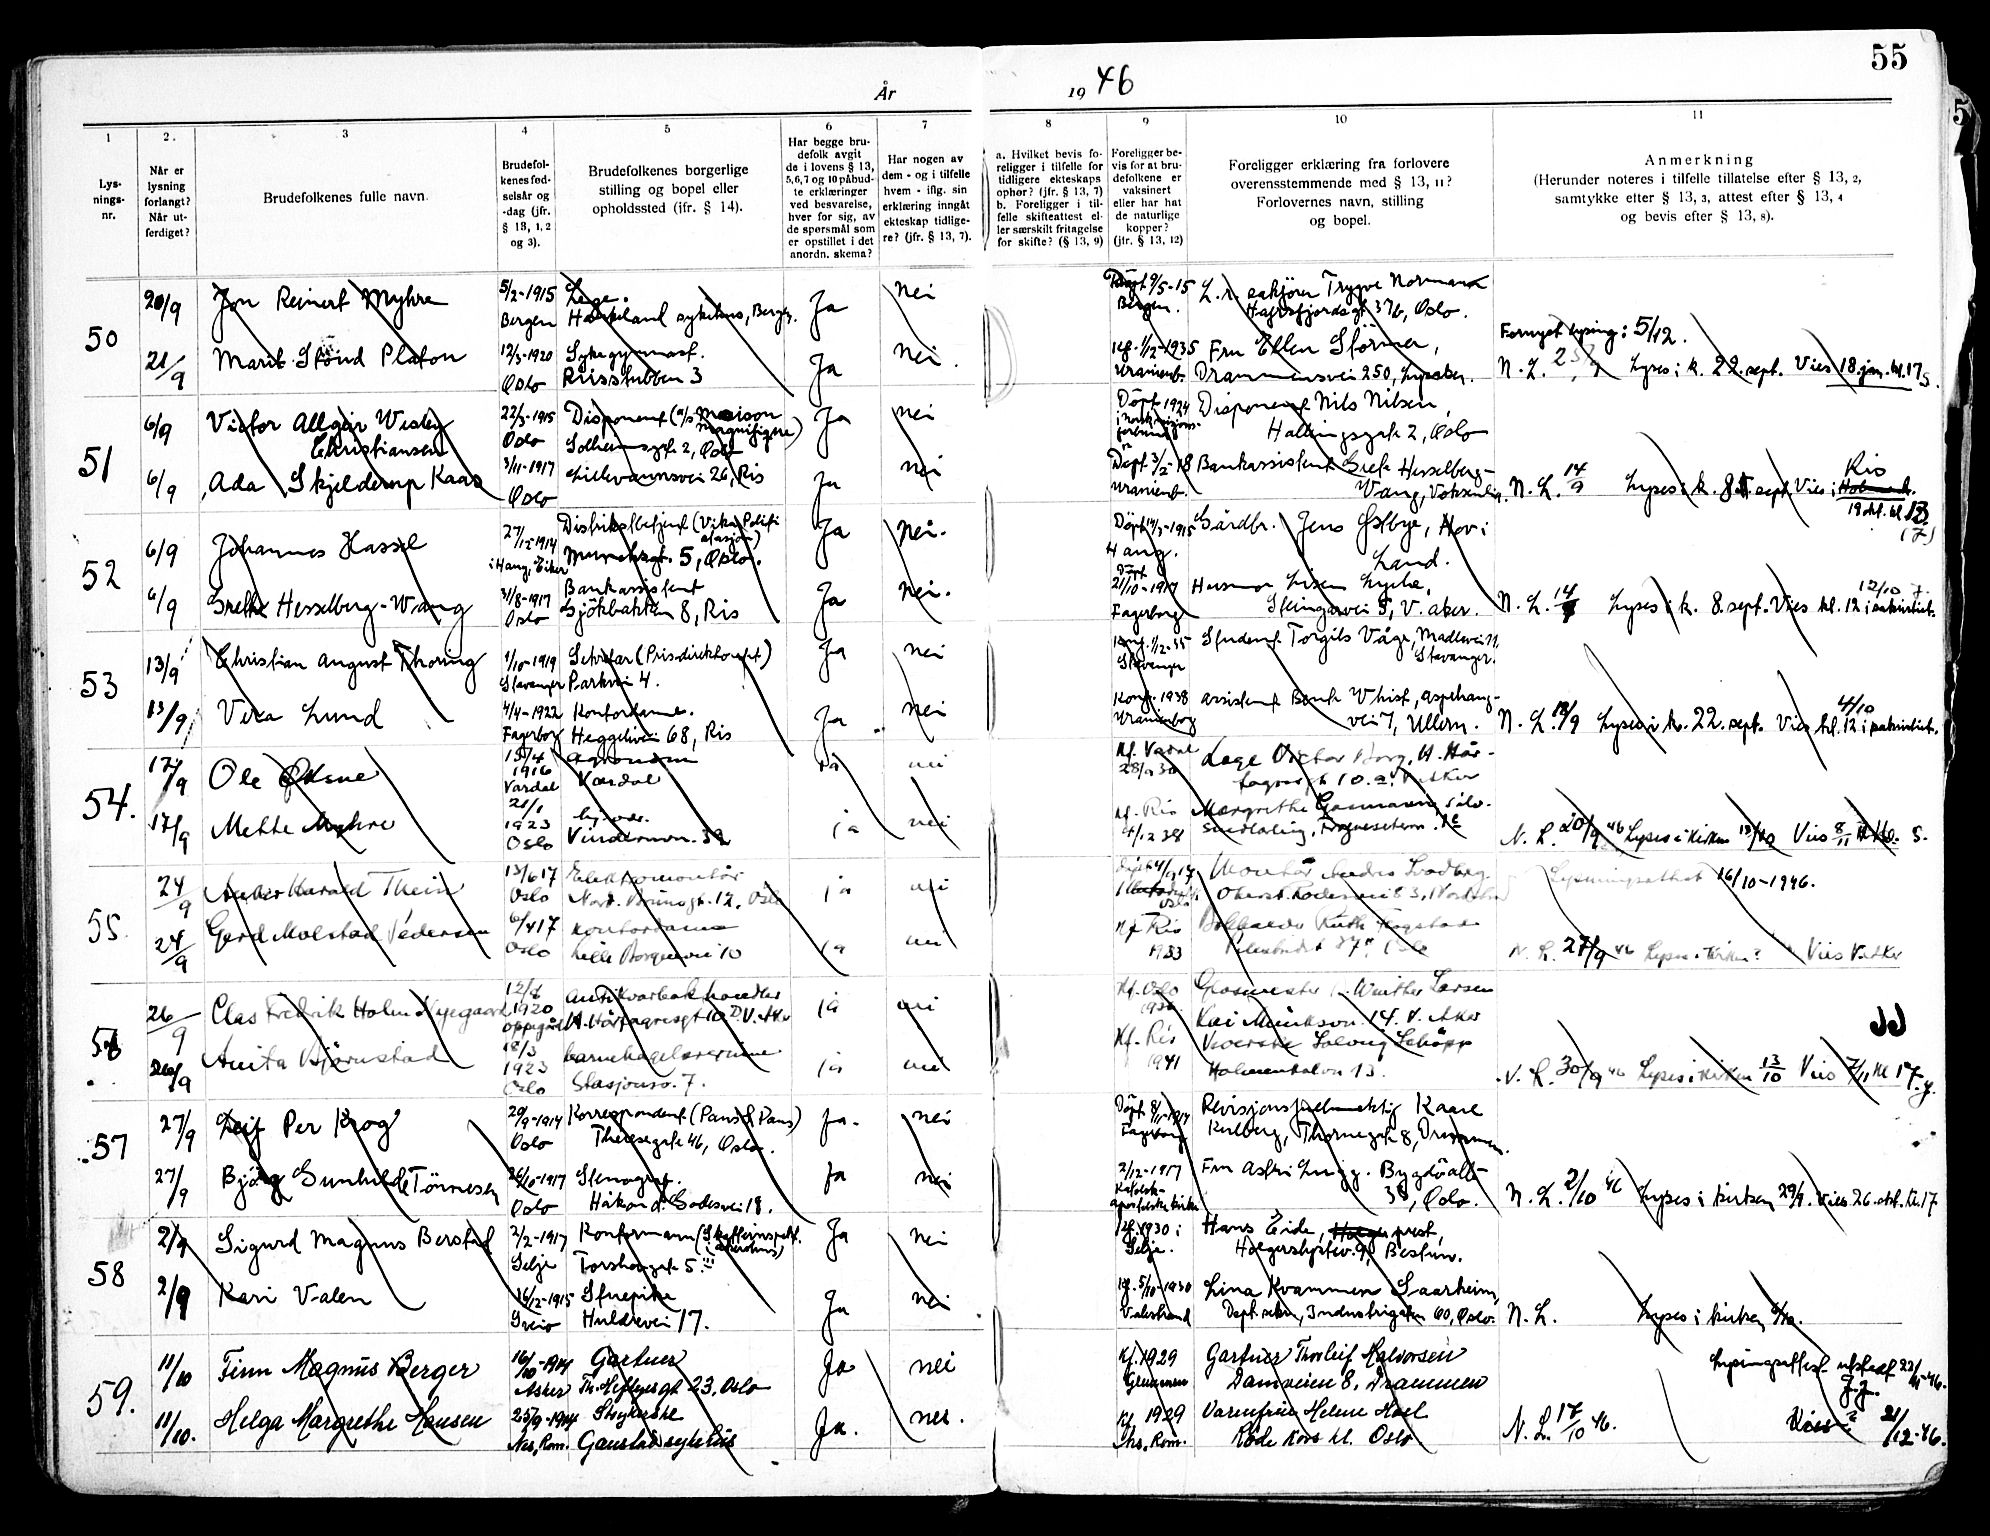 55
År
19 46
1
2.
3
4
5
6
7
8
9
10
11
Lys-
nings-
nr.
Når er
lysning
forlangt?
Når ut-
ferdiget?
Brudefolkenes fulle navn.
Brudefol-
kenes fød-
selsår og
-dag (jfr.
§ 13, 1, 2
og 3).
Brudefolkenes borgerlige
stilling og bopel eller
opholdssted (jfr. § 14).
Har begge bru-
defolk avgit
de i lovens § 13,
5, 6, 7 og 10 påbud-
te erklæringer
ved besvarelse,
hver for sig, av
de spørsmål som
er opstillet i det
anordn. skema?
Har nogen av
dem - og i tilfelle
hvem - iflg. sin
erklæring inngåt
ekteskap tidlige-
re? (jfr. § 13, 7).
a. Hvilket bevis fo-
religger i tilfelle for
tidligere ekteskaps
ophør? (jfr. § 13, 7)
b. Foreligger i til-
felle skifteattest el-
ler særskilt fritagelse
for skifte? (§ 13, 9)
Foreligger be-
vis for at bru-
defolkene er
vaksinert
eller har hat
de naturlige
kopper?
(jfr. § 13, 12)
Foreligger erklæring fra forlovere
overensstemmende med § 13, 11?
Forlovernes navn, stilling
og bopel.
Anmerkning
(Herunder noteres i tilfelle tillatelse efter § 13, 2,
samtykke efter § 13, 3, attest efter § 13, 4
og bevis efter § 13, 8).
50
20/9
Jon Reinert Myhre
5/2-1915
Bergen
Lege.
Haukeland sykehus, Bergen.
Ja
nei
Döpt 9/5-15
Bergen.
L.r. sakförer Trygve Normann
Hafrsfjordsgt 37b, Oslo.
21/9
Marit Stönd Platon
12/3-1920
Oslo
Sykegymnast.
Riisstubben 3
Ja
nei.
Kf. 1/12-1935
Uranienb.
Fru Ellen Störmer,
Drammensvei 250, Lysaker.
Fornyet lysing: 5/12.
N. L. Lyses i k. 22. sept. Vies 18. jan. kl. 17
51
6/9
Victor Allgür Wisley
Christiansen
22/3-1915
Oslo
Disponent (A/S Maison
Magnifique)
Solheimsgt. 2, Oslo
Ja
nei
Döpt 1924
Disponent Nils Nilsen,
Hallingsgate 2, Oslo
6/9
Ada Skjelderup Kaas
3/11-1917
Oslo
Lillevannsvei 26, Ris
Ja
nei
Döpt 3/2-18
Uranienb.
Bankassistent Grete Hesselberg-
Wang, Voksenlia.
N. L. 14/9 Lyses i k. 8. sept. Vies i Ris
19 okt. kl 13
52
6/9
Johannes Hassel
27/12-1914
i Haug, Eiker
Distriktsbetjent (Vika Politi
stasjon)
Munchsgt. 5, Oslo.
Ja
nei.
Döpt 14/3-1915
Haug.
Gårdbr. Jens Østbye, Hov i
Land.
6/9
Grethe Hesselberg-Wang
31/8-1917
Oslo
Bankassistent
Gjökbakken 8, Ris
Ja
nei.
Döpt
21/10-1917
Fagerborg
Husmor Lisen Lyche,
Steingrvei 5, V. aker.
N. L. 14/9 Lyses i k. 8. sept. Vies kl. 12 i sakristiet.
12/10
53
13/9
Christian August Thoring
1/10-1919
Stavanger
Sekretær (Prisdirektoratet)
Parkvei 4.
Ja
nei
Konf. 1/12-35
Stavanger
Student Torgils Våge, Madlavei 11,
Stavanger.
13/9
Vera Lund
4/4-1922
Fagerborg
Kontordame.
Heggeliveien 68, Ris
Ja
nei
Konf. 1938
Uranienborg
assistent Bente Whist, Aspehaug-
vei 7, Ullern.
N. L. 18/9 Lyses i k. 22. sept. Vies kl. 12 i sakristiet.
4/10
54.
17/9
Ole Øksne
13/4
1916
Vardal
agronom
Vardal
ja
nei
Kf. Vardal
28/9 30
Lage Victor Borg, H. Hår-
fagresgt 10. a. V. Aker
17/9
Mette Myhre
21/1
1923
Oslo
Vinderenvn. 32
ja
nei
Kf. Ris
4/12 38
Margrethe Gasmann,
N. L. 20/9 46 Lyses i kirken 13/10 Vies 8/11
55.
24/9
Anker Harald Thein
13/6 17
Oslo
Elektromontör
Nord. Brunsgt. 12. Oslo
ja
nei
Montör
Lysningsattest 16/10-1946.
24/9
Gerd Molstad Pedersen
6/4 17
Oslo
Kontordame
Lille Borgenvei 10
ja
nei
Kf. Ris
1933
N. L. 27/9 46 Lyses i kirken? Vies V. Aker
56
26/9
Clas Fredrik Holm Nyegaard
12/7
1920
Oppegård
antikvarbokhandler
H. Hårfagresgt 10 D. V. Aker
ja
nei
Kf. Oslo
Grosserer Winther Larsen
Kai Munksvn. 14. V. Aker
26/9
Anita Bjørnstad
18/3
1923
Oslo
barnehagelærerinne
Stasjonsv. 7.
ja
nei
Kf. Ris
1941
Solveig Schöpp
Holmenkolvn 13.
N. L. 30/9 46 Lyses i kirken 13/10 Vies 2/11 kl 17.
57
27/9
Leif Per Krog
29/9-1914
Oslo
Korrespondent (Pans & Pans)
Theresegate 46, Oslo.
Ja.
nei
Döpt 8/11-1914
Fagerborg
Revisjonsfullmektig Kaare
Kulberg, Thornegate 8, Drammen.
27/9
Bjørg Gunhild Tönnesen
26/10-1917
Oslo
Stenograf.
Håkon d. Godesvei 18.
Ja
nei
2/12-1917
Katolsk-
apostoliske kirke
Fru Astri Lugg. Bygdöallé
38, Oslo.
N. L. 2/10 46 Lyses i kirken 29/9. Vies 26. okt. kl. 17
58
2/9
Sigurd Magnus Berstad
2/2-1917
Selje
Kontormann
Torshovgate 5
Ja
nei
Kf. 1930 i
Selje.
Hans Eide, prest,
Holgerslystv. 9, Bestum.
2/9
Kari Valen
16/2-1915
Sveio
Stuepike
Huldrevei 17.
Ja
nei
Kf. 5/10-1930
Valestrand
Lina Kvammen Saarheim,
Dept. sekr., Industrigaten 60, Oslo.
N. L. Lyses i kirken 6/10.
59.
11/10
Finn Magnus Berger
16/10-1914
Asker
Gartner
Th. Heftyesgt 23, Oslo
Ja
nei
Kf. 1929
Glemmen
Gartner Thorleif Halvorsen
Damveien 8, Drammen
11/10.
Helga Margrethe Hansen
25/9-1914
Nes, Rom.
Strykerske
Gaustad sykehus
Ja.
nei.
Kf. 1929
Nes, Rom.
Varenfrue Helene Moel
Röde Kors kl. Oslo
Lysingsattest utstedt 22/11-46.
N. L. 17/10 46. Vies? 21/12-46.